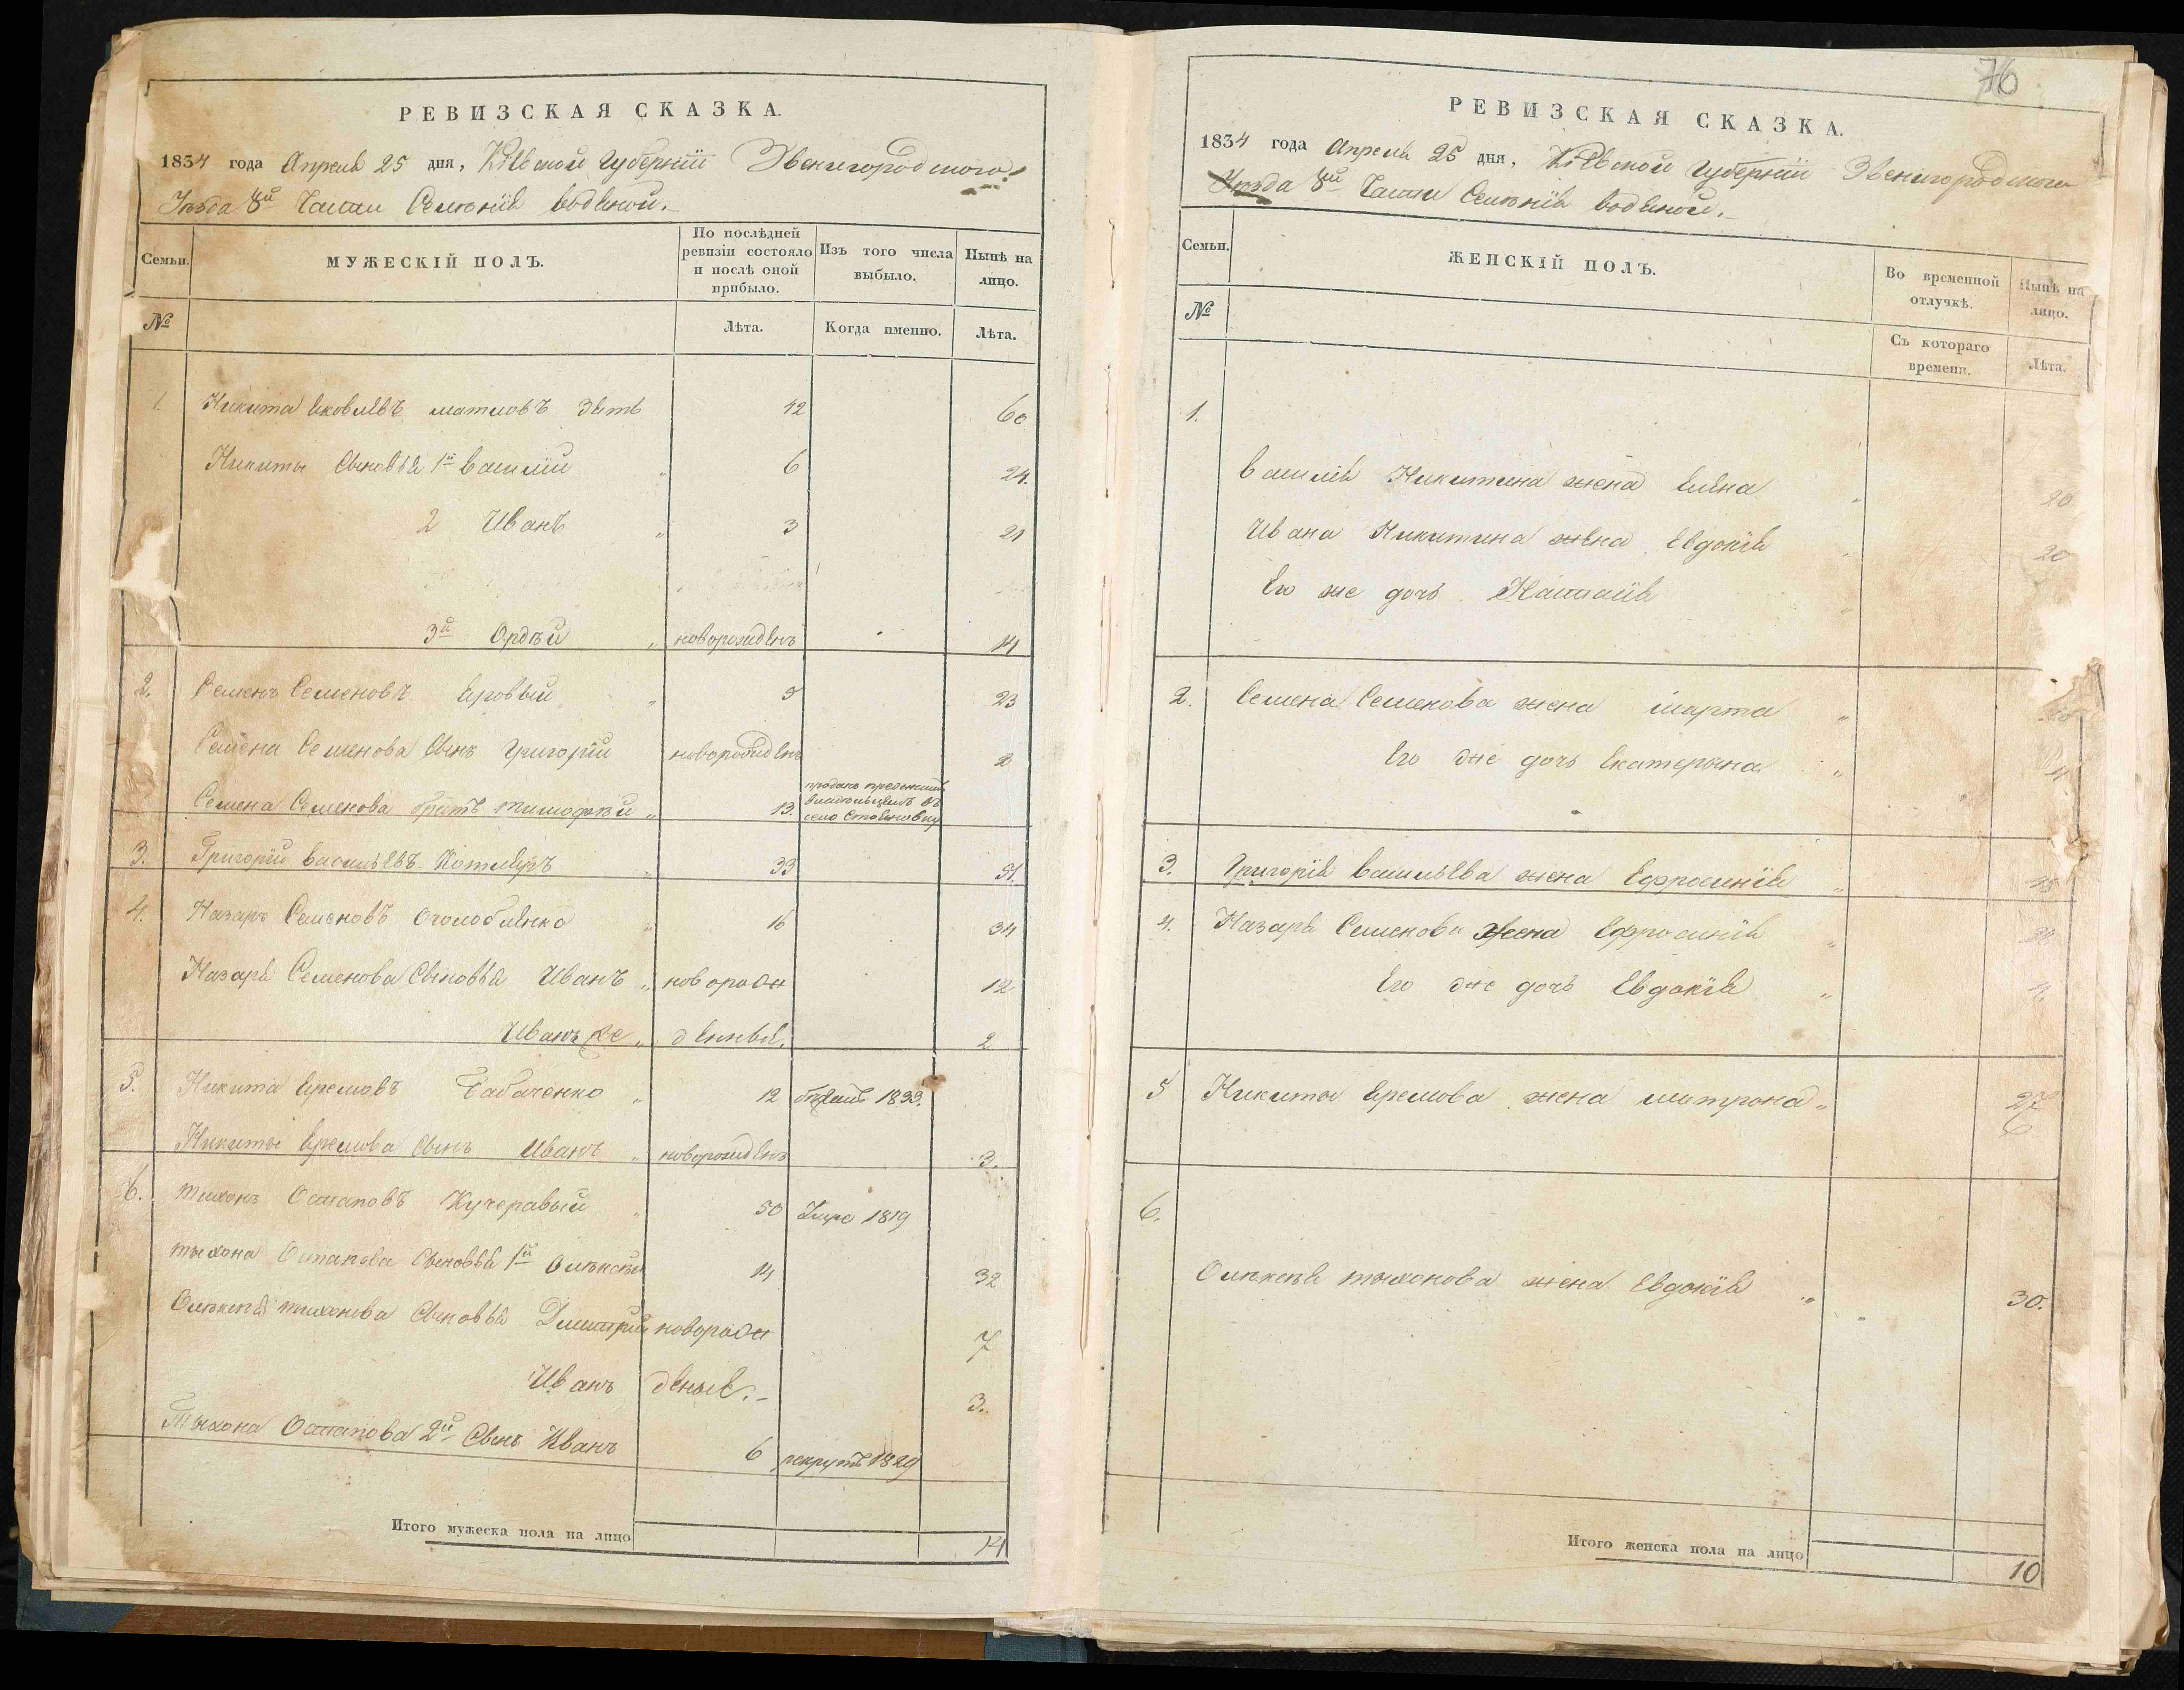 РЕВИЗСКАЯ СКАЗКА.
1834 года Апреля 25 дня, Кіевской Губерніи Звенигородскаго
Уѣзда 8й Части Селѣнія Водяной.
Семьи.
МУЖЕСКІЙ ПОЛЪ.
По послѣдней ревизіи состояло и послѣ оной прибыло.
Изъ того числа выбыло.
Нынѣ на лицо.
№
Лѣта.
Когда именно.
Лѣта.
1. Никита Яковлевъ зять 42 60
Никиты Сыновья 1й Василій 6 24.
2 Иванъ 3 21
3й Ордѣй новорожденъ 14
2. Семенъ Семеновъ Яровый 5 23
Семена Семенова Сынъ Григорій новорожденъ 2
Семена Семенова братъ Тимофѣй 13. проданъ прежнимъ владѣльцемъ въ село
3. Григорій Васильевъ Котляръ 33 51.
4. Назаръ Семеновъ Оголобленко 16 34
Назара Семенова Сыновья Иванъ новорож 12
Иванъ же денные. 2
5. Никита Яремовъ Бабаченко 12 бѣжалъ 1833.
Никиты Яремова Сынъ Иванъ новорожденъ 3.
6. Тихонъ Остаповъ Кучеравый 50 Умре 1819
Тыхона Остапова Сыновья 1й Олѣксѣй 14 32
Олѣксѣя Тихонова Сыновья Дмитрій новорож 7
Иванъ деные. 3.
Тыхона Остапова 2й Сынъ Иванъ 6 рекрутъ 1829
Итого мужеска пола на лицо 14
76
РЕВИЗСКАЯ СКАЗКА.
1834 года Апреля 25 дня, Кіевской Губерніи Звенигородскаго
Уѣзда 8й Части Селѣнія Водяной.
Семьи.
ЖЕНСКІЙ ПОЛЪ.
Во временной отлучкѣ.
Нынѣ на лицо.
№
Съ котораго времени.
Лѣта.
1.
Василія Никитина жена Елена 20
Ивана Никитина жена Евдокія 20
Его же дочь Наталія
2. Семена Семенова жена Марта
Его же дочь Екатерына 4
3. Григорія Васильева жена Ефросинія
4. Назара Семенова жена Ефросинія 30
Его же дочь Евдокія 4.
5 Никиты Яремова жена Матрона 27
6
6.
Олѣксѣя Тыхонова жена Евдокія 30.
Итого женска пола на лицо 10